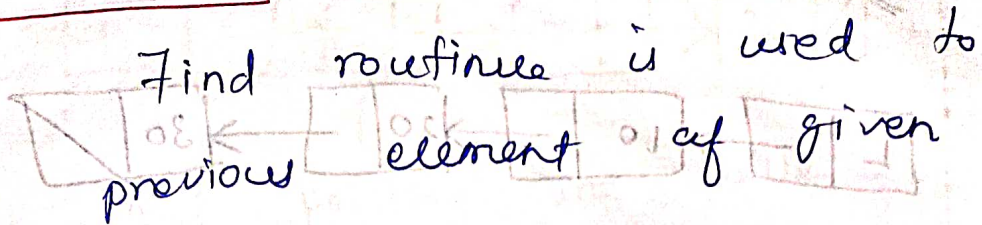 Find routine is used to
previous element of given